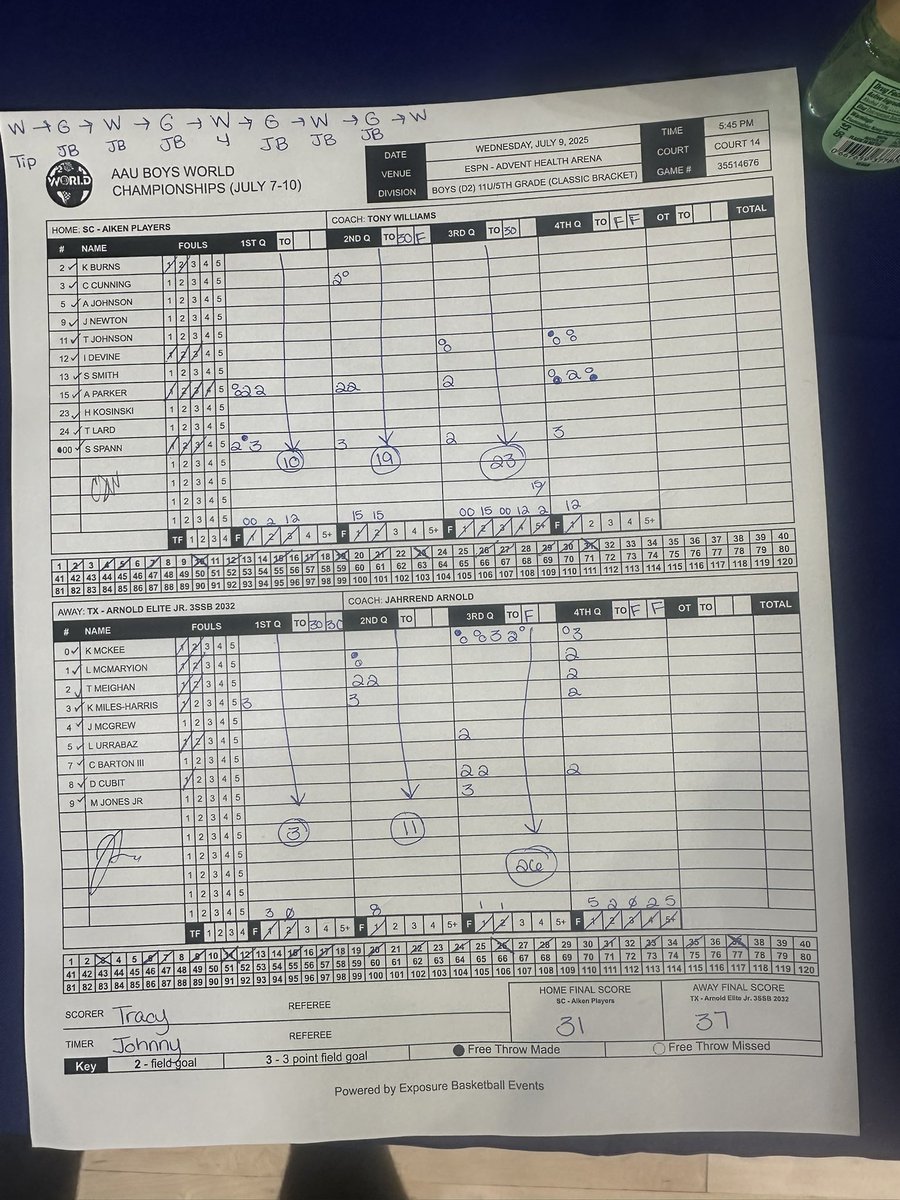 W → G → W → G → W → G → W → G → W
Tip JB JB JB 4 JB JB JB
WORLD
AAU BOYS WORLD
CHAMPIONSHIPS (JULY 7-10)
DATE WEDNESDAY, JULY 9, 2025 TIME 5:45 PM
VENUE ESPN - ADVENT HEALTH ARENA COURT COURT 14
DIVISION BOYS (D2) 11U/5TH GRADE (CLASSIC BRACKET) GAME # 35514676
HOME: SC - AIKEN PLAYERS COACH: TONY WILLIAMS
# NAME FOULS 1ST Q TO 2ND Q TO 30 F 3RD Q TO 30 4TH Q TO F F OT TO TOTAL
2 ✓ K BURNS 1 2 3 4 5
3 ✓ C CUNNING 1 2 3 4 5 2○
5 ✓ A JOHNSON 1 2 3 4 5
9 ✓ J NEWTON 1 2 3 4 5
11 ✓ T JOHNSON 1 2 3 4 5
12 ✓ I DEVINE 1 2 3 4 5
13 ✓ S SMITH 1 2 3 4 5
15 ✓ A PARKER 1 2 3 4 5 22 22 2 2
23 ✓ H KOSINSKI 1 2 3 4 5
24 ✓ T LARD 1 2 3 4 5
00 ✓ S SPANN 1 2 3 4 5 2●3 3 2 3
1 2 3 4 5 10 19 23
1 2 3 4 5
1 2 3 4 5 15
1 2 3 4 5 00 2 12 15 15 00 15 00 12 2 12
TF 1 2 3 4 F 1 2 3 4 5+ F 1 2 3 4 5+ F 1 2 3 4 5+ F 1 2 3 4 5+
1 2 3 4 5 6 7 8 9 10 11 12 13 14 15 16 17 18 19 20 21 22 23 24 25 26 27 28 29 30 31 32 33 34 35 36 37 38 39 40
41 42 43 44 45 46 47 48 49 50 51 52 53 54 55 56 57 58 59 60 61 62 63 64 65 66 67 68 69 70 71 72 73 74 75 76 77 78 79 80
81 82 83 84 85 86 87 88 89 90 91 92 93 94 95 96 97 98 99 100 101 102 103 104 105 106 107 108 109 110 111 112 113 114 115 116 117 118 119 120
AWAY: TX - ARNOLD ELITE JR. 3SSB 2032 COACH: JAHRREND ARNOLD
# NAME FOULS 1ST Q TO 30 30 2ND Q TO 3RD Q TO F 4TH Q TO F F OT TO TOTAL
0 ✓ K MCKEE 1 2 3 4 5 3 2○ ○3
1 ✓ L MCMARYION 1 2 3 4 5 2
2 ✓ T MEIGHAN 1 2 3 4 5 22 2
3 ✓ K MILES-HARRIS 1 2 3 4 5 3 3 2
4 ✓ J MCGREW 1 2 3 4 5
5 ✓ L URRABAZ 1 2 3 4 5 2
7 ✓ C BARTON III 1 2 3 4 5
8 ✓ D CUBIT 1 2 3 4 5 2 2 2
9 ✓ M JONES JR 1 2 3 4 5 3
1 2 3 4 5
1 2 3 4 5 3 11
1 2 3 4 5
1 2 3 4 5 26
1 2 3 4 5
1 2 3 4 5 3 0 8 1 1 5 2 0 2 5
TF 1 2 3 4 F 1 2 3 4 5+ F 1 2 3 4 5+ F 1 2 3 4 5+ F 1 2 3 4 5+
1 2 3 4 5 6 7 8 9 10 11 12 13 14 15 16 17 18 19 20 21 22 23 24 25 26 27 28 29 30 31 32 33 34 35 36 37 38 39 40
41 42 43 44 45 46 47 48 49 50 51 52 53 54 55 56 57 58 59 60 61 62 63 64 65 66 67 68 69 70 71 72 73 74 75 76 77 78 79 80
81 82 83 84 85 86 87 88 89 90 91 92 93 94 95 96 97 98 99 100 101 102 103 104 105 106 107 108 109 110 111 112 113 114 115 116 117 118 119 120
SCORER Tracy REFEREE
TIMER Johnny REFEREE
HOME FINAL SCORE
SC - Aiken Players
31
AWAY FINAL SCORE
TX - Arnold Elite Jr. 3SSB 2032
37
Key 2 - field goal 3 - 3 point field goal ● Free Throw Made ○ Free Throw Missed
Powered by Exposure Basketball Events